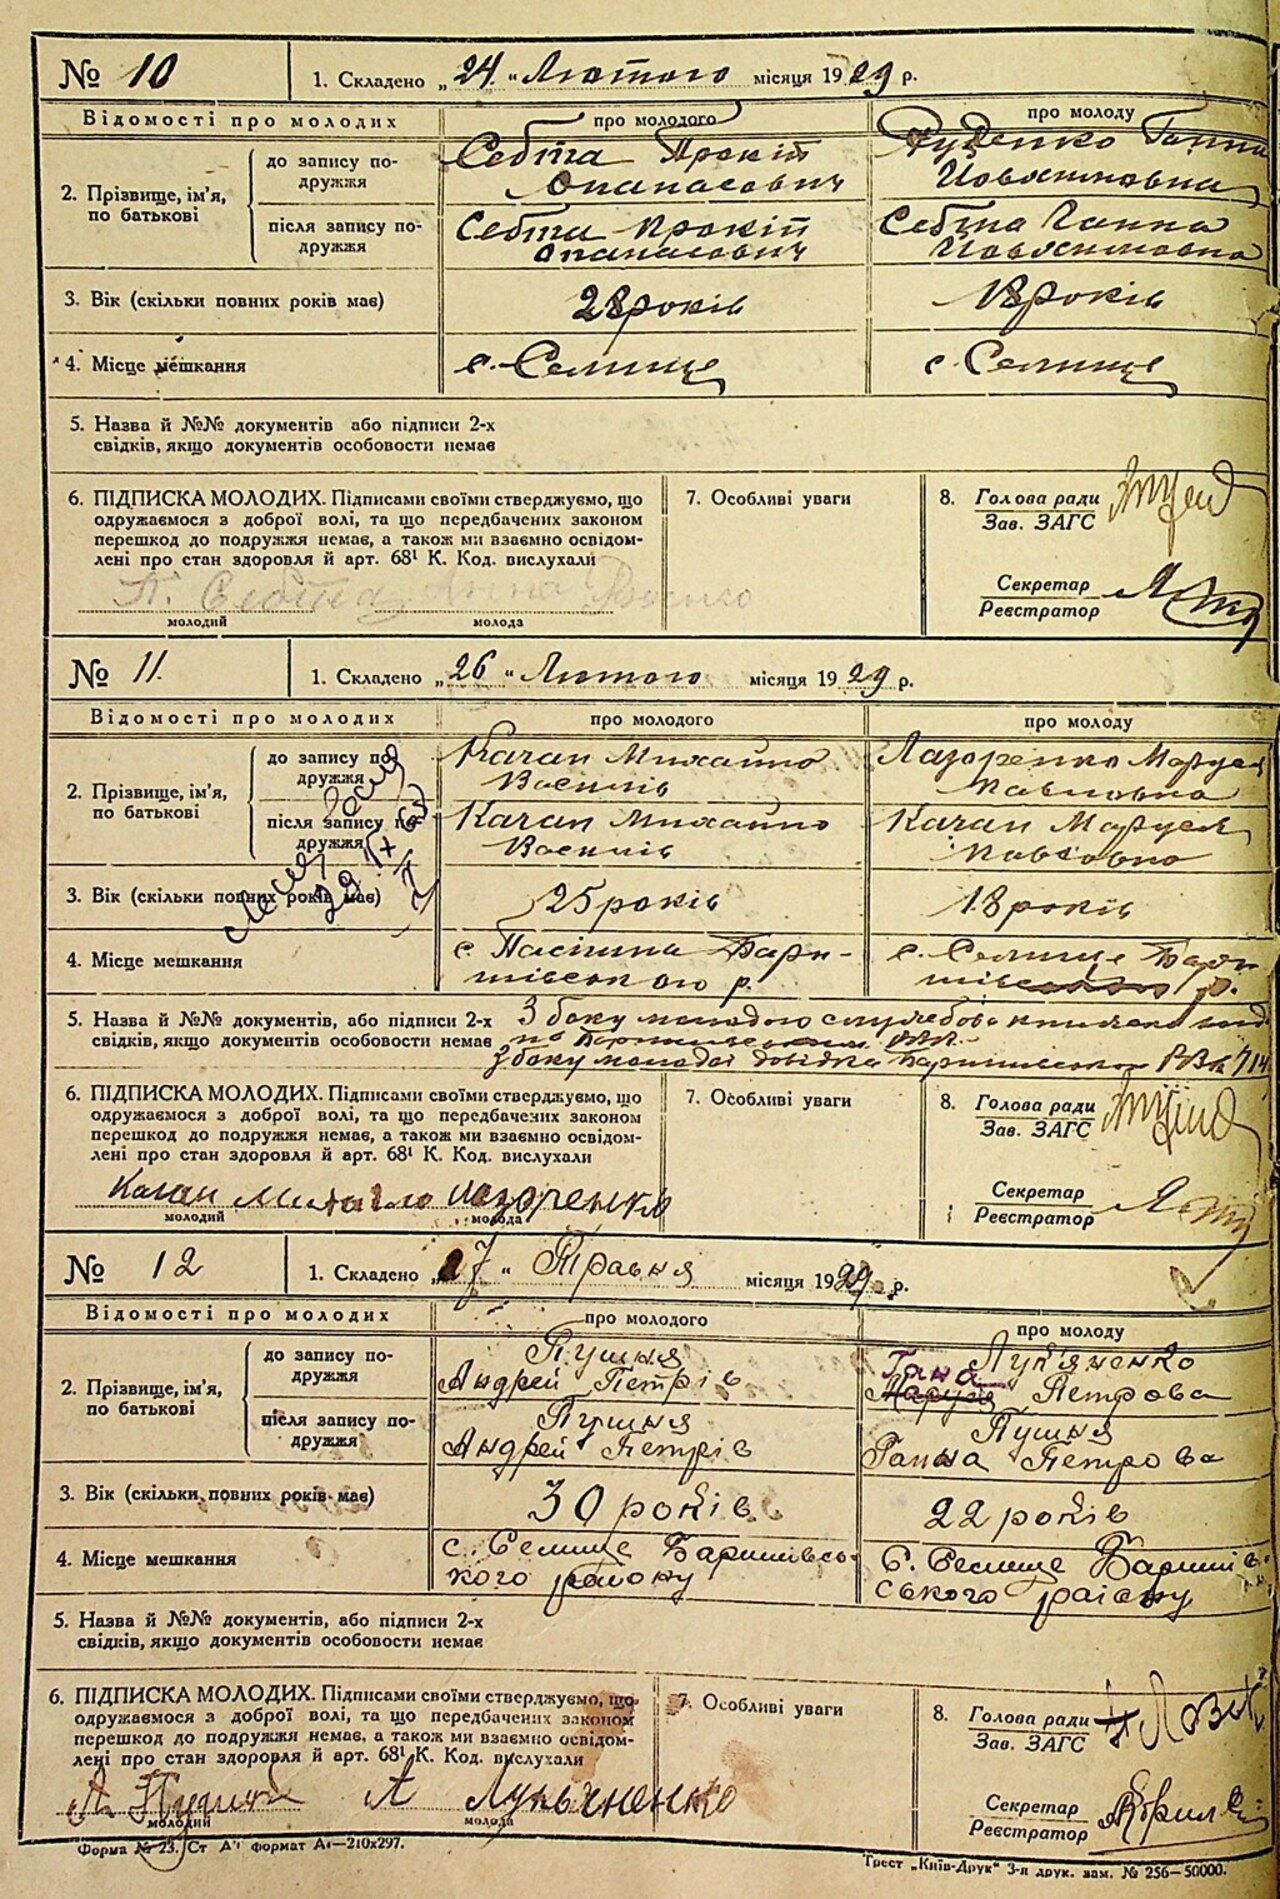 № 10 1. Складено „24“ Лютого місяця 1929 р.
Відомості про молодих про молодого про молоду
2. Прізвище, ім’я, по батькові
до запису подружжя
Себта Прокіп Руденко Ганна
Опанасович
після запису подружжя
Себта Прокіп Себта Ганна
Опанасович
3. Вік (скільки повних років має) 28 років 18 років
4. Місце мешкання с. Селище с. Селище
5. Назва й №№ документів або підписи 2-х
свідків, якщо документів особовости немає
6. ПІДПИСКА МОЛОДИХ. Підписами своїми стверджуємо, що
одружаємося з доброї волі, та що передбачених законом
перешкод до подружжя немає, а також ми взаємно освідом-
лені про стан здоровля й арт. 68¹ К. Код. вислухали
П. Себта Анна Руденко
молодий молода
7. Особливі уваги
8. Голова ради
Зав. ЗАГС
Секретар
Реєстратор
№ 11. 1. Складено „26“ Лютого місяця 1929 р.
Відомості про молодих про молодого про молоду
2. Прізвище, ім’я, по батькові
до запису подружжя
Качан Михайло Лазоренко Маруся
Василів Павловна
після запису подружжя
Качан Михайло Качан Маруся
Василів Павловна
3. Вік (скільки повних років має) 25 років 18 років
4. Місце мешкання с. Пасішна Бари- с. Селище Бари-
шівського р. шівського р.
5. Назва й №№ документів, або підписи 2-х З боку молодого службова книжка
свідків, якщо документів особовости немає
з боку молодої довідка Баришівського РВК 714
6. ПІДПИСКА МОЛОДИХ. Підписами своїми стверджуємо, що
одружаємося з доброї волі, та що передбачених законом
перешкод до подружжя немає, а також ми взаємно освідом-
лені про стан здоровля й арт. 68¹ К. Код. вислухали
Качан Михайло Лазоренко
молодий молода
7. Особливі уваги
8. Голова ради
Зав. ЗАГС
Секретар
Реєстратор
№ 12 1. Складено „17“ Травня місяця 1929 р.
Відомості про молодих про молодого про молоду
2. Прізвище, ім’я, по батькові
до запису подружжя
Пушня Лук'яненко
Андрей Петрів Гана Маруся Петрова
після запису подружжя
Пушня Пушня
Андрей Петрів Ганна Петрова
3. Вік (скільки повних років має) 30 років 22 років
4. Місце мешкання с. Селище Баришівсь- С. Селище Баришів-
кого району ського району
5. Назва й №№ документів, або підписи 2-х
свідків, якщо документів особовости немає
6. ПІДПИСКА МОЛОДИХ. Підписами своїми стверджуємо, що
одружаємося з доброї волі, та що передбачених законом
перешкод до подружжя немає, а також ми взаємно освідом-
лені про стан здоровля й арт. 68¹ К. Код. вислухали
А Пушня Лукьяненко
молодий молода
7. Особливі уваги
8. Голова ради
Зав. ЗАГС
Секретар
Реєстратор
Форма № 23. Ст А¹ формат А₄—210х297.
Трест „Київ-Друк“ 3-я друк. зам. № 256—50000.